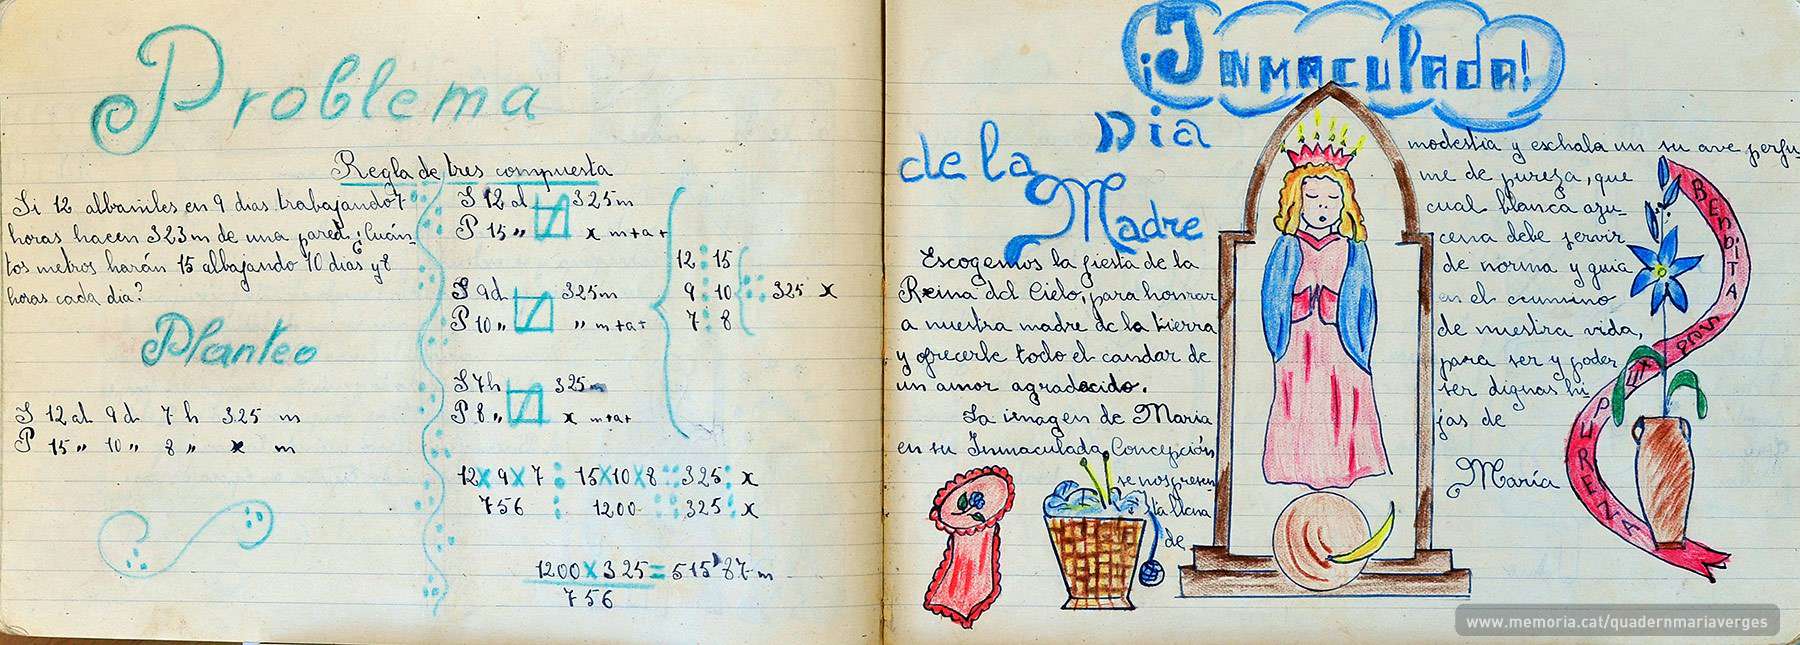 Problema
Regla de tres compuesta
Si 12 albañiles en 9 dias trabajando 7
horas hacen 323 m de una pared ¿Cuán-
tos metros harán 15 albajando 10 dias y 8
horas cada dia?
Planteo
S 12 al 9 d 7 h 325 m
P 15 „ 10 „ 8 „ x m
S 12 al 325 m
P 15 „ x m+a+
S 9 d 325 m
P 10 „ „ m+a+
S 7 h 325 m
P 8 „ x m+a+
12 : 15
9 : 10 :: 325 : x
7 : 8
12 x 9 x 7 : 15 x 10 x 8 :: 325 : x
756 : 1200 :: 325 : x
1200 x 325 = 515'87 m
756
¡Inmaculada!
Dia
de la
Madre
Escogemos la fiesta de la
Reina del Cielo, para honrar
a nuestra madre de la tierra
y ofrecerle todo el candar de
un amor agradecido.
La imagen de Maria
en su Inmaculada Concepción
se nos presen-
ta llena
de
modestia y eschala un su ave perfu-
me de pureza, que
cual blanca azu-
cena debe servir
de norma y guia
en el camino
de nuestra vida,
para ser y poder
ser dignas hi-
jas de
María
BENDITA
SEA
TU
PUREZA
www.memoria.cat/quadernmariaverges